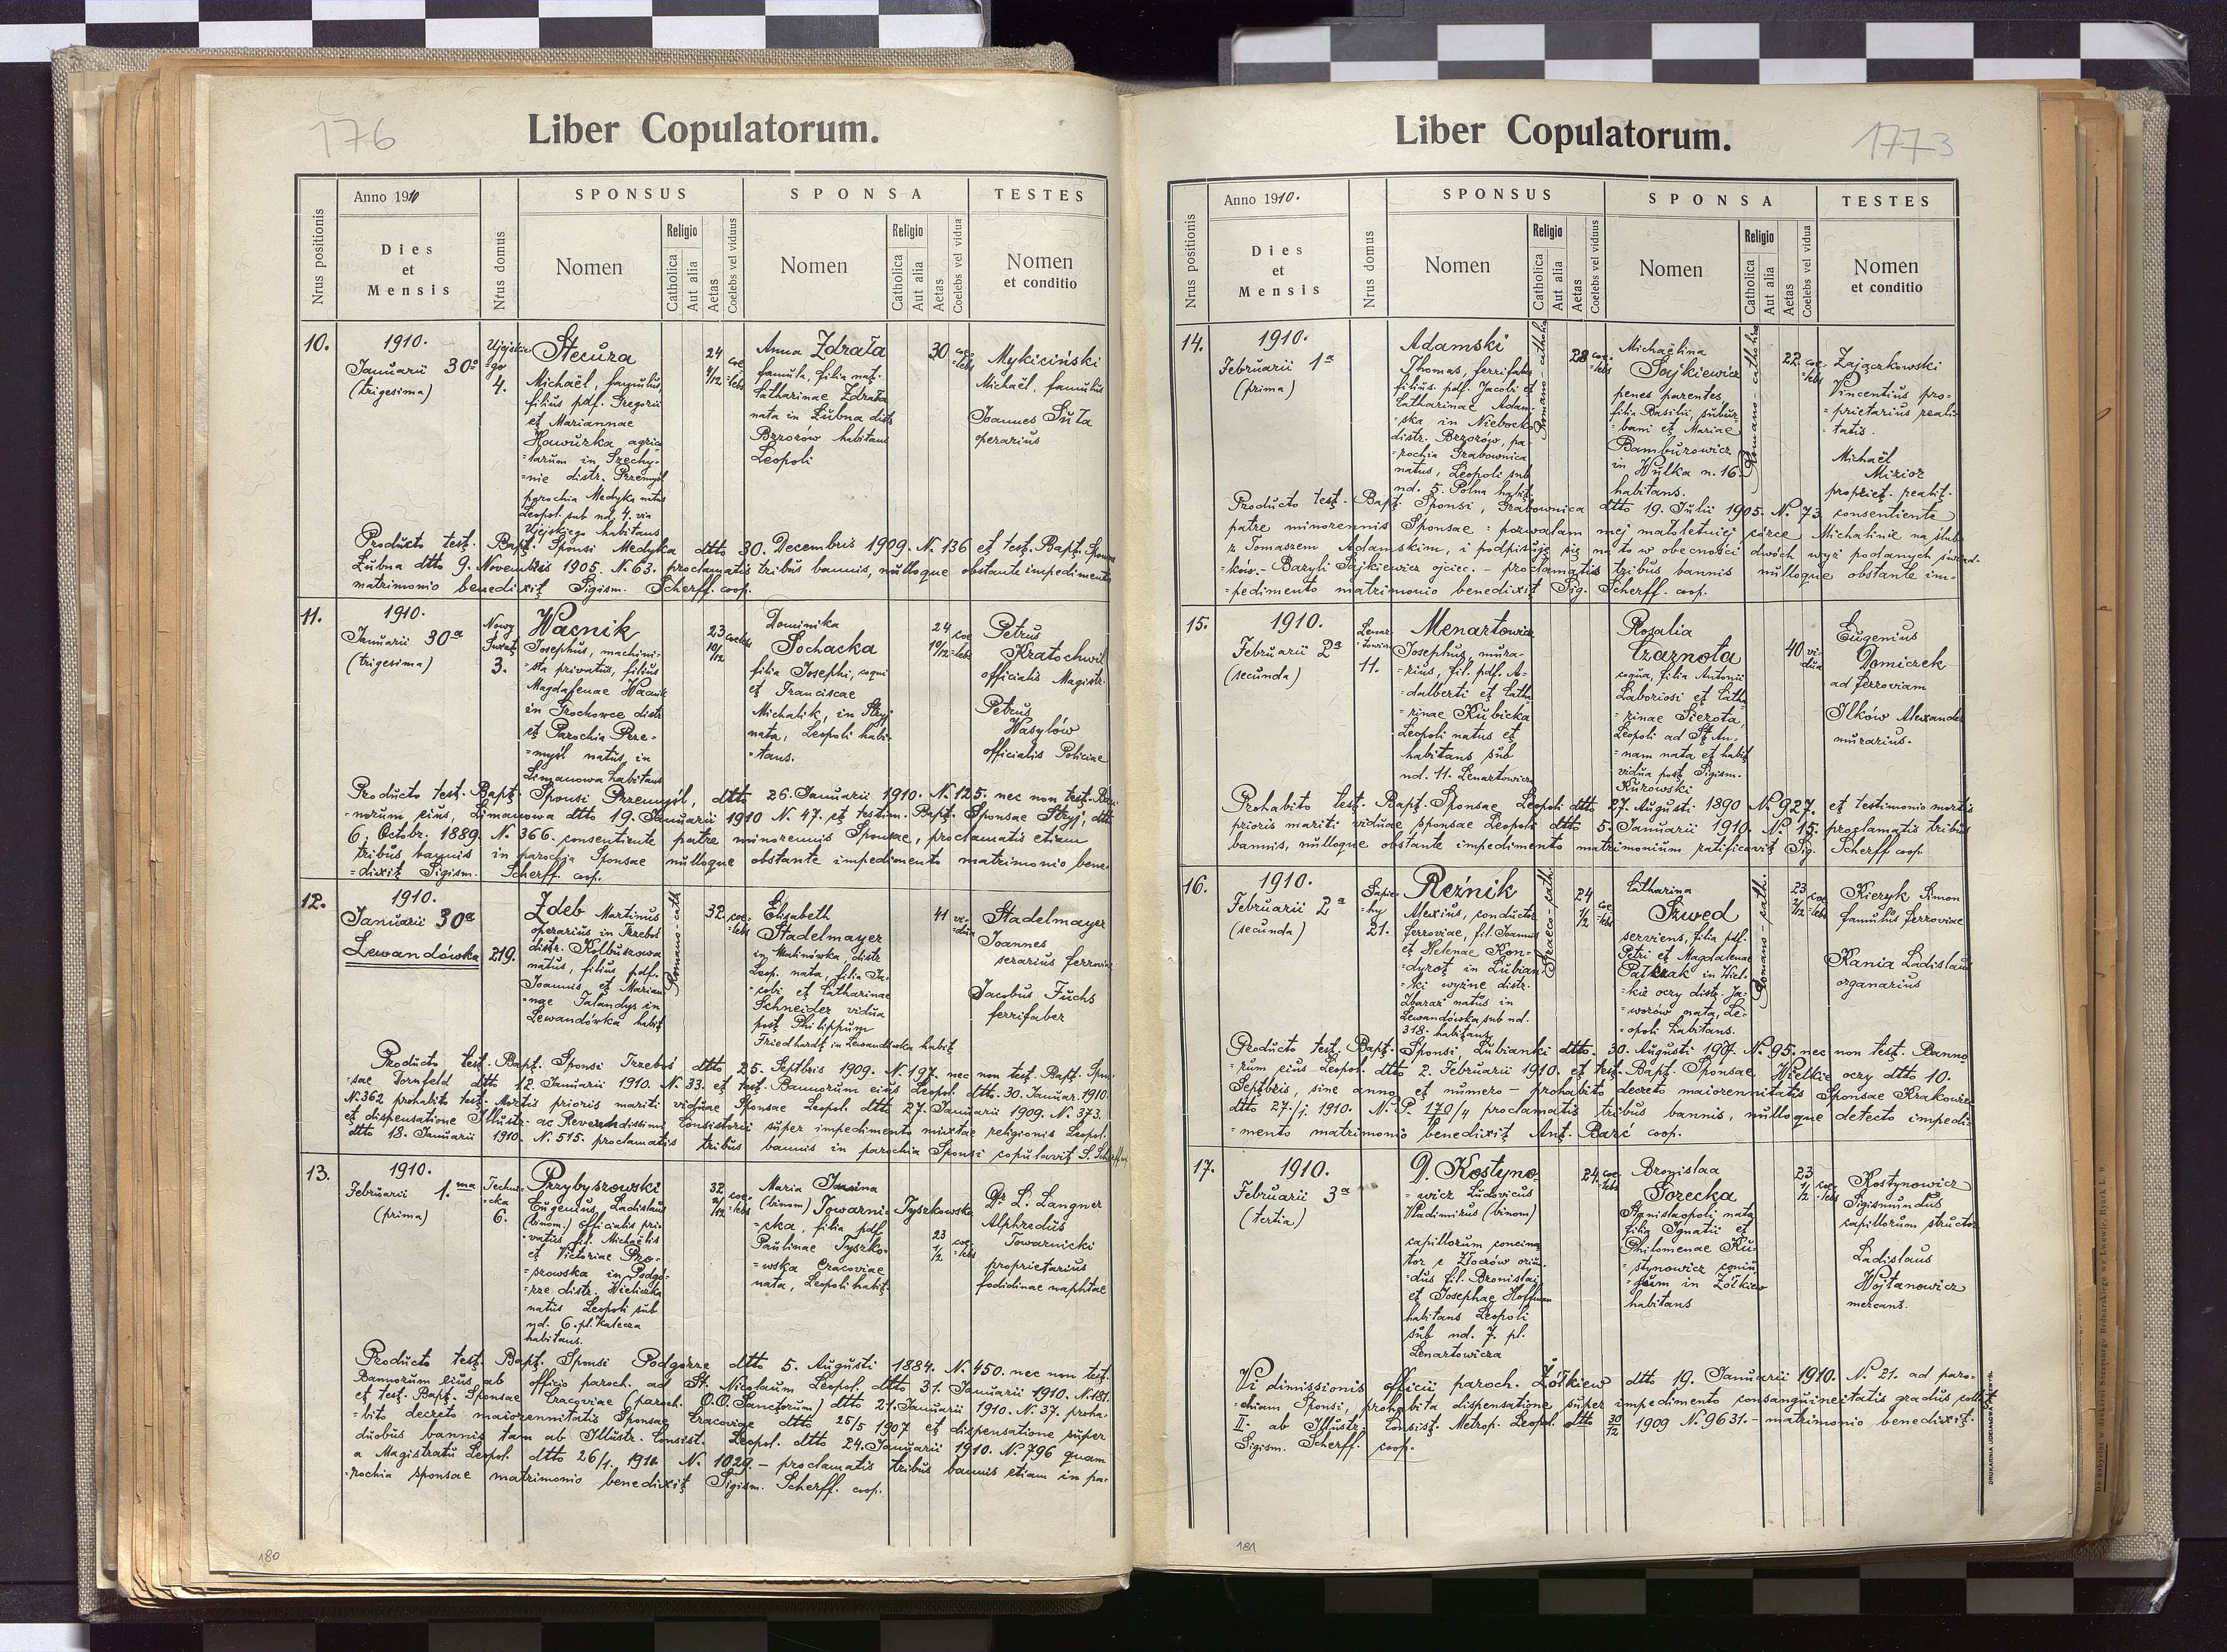 176
Liber Copulatorum.
Nrus positionis
Anno 1910
Dies
et
Mensis
Nrus domus
SPONSUS
Nomen
Religio
Catholica
Aut alia
Aetas
Coelebs vel viduus
SPONSA
Nomen
Religio
Catholica
Aut alia
Aetas
Coelebs vel vidua
TESTES
Nomen
et conditio
10.
1910.
Januarii 30a
(trigesima)
Ujejskie-
=go
4.
Stecura
Michaël, famulus
filius pdf. Gregorii
et Mariannae
Hawurka agrico
=larum in Szechy-
=nie distr. Przemyśl
parochia Medyka natus
Leopol. sub nd. 4. via
Ujejskiego habitans
24
4/12
coe
=lebs
Anna Zdrata
famula, filia nat.
Catharinae Zdrata
nata in Łubna distr.
Brzozów habitans
Leopoli
30
coe-
=lebs
Mykiciński
Michaël, famulus
Joannes Suta
operarius
Producto test. Bapt. Sponsi Medyka dtto 30. Decembris 1909. N. 136 et test. Bapt. Sponsae
Łubna dtto 9. Novembris 1905. N. 63. proclamatis tribus bannis, nulloque obstante impedimento
matrimonio benedixit Sigism. Scherff. coop.
11.
1910.
Januarii 30a
(trigesima)
Nowy
Świat
3.
Wacnik
Josephus, machini-
=sta privatus, filius
Magdalenae Wacnik
in Grochowce distr.
et Parochia Prze-
=myśl natus, in
Limanowa habitans
23
10/12
coelebs
Dominika
Sochacka
filia Josephi, coqui
et Franciscae
Michalik, in Stryj
nata, Leopoli habi-
=tans.
24
19/12
coe
=lebs
Petrus
Kratochwil
officialis Magistr.
Petrus
Wasylów
officialis Policiae
Producto test. Bapt. Sponsi Przemyśl, dtto 26. Januarii 1910. N. 125. nec non test. Ban-
=norum eius, Limanowa dtto 19. Januarii 1910 N. 47. et testim. Bapt. Sponsae Stryj, dtto
6. Octobr. 1889. N. 366. consentiente patre minorennis Sponsae, proclamatis etiam
tribus bannis in parochia Sponsae nulloque obstante impedimento matrimonio bene-
=dixit Sigism. Scherff. coop.
12.
1910.
Januarii 30a
Lewandówka
219.
Zdeb Martinus
operarius in Trzebos
distr. Kolbuszowa
natus, filius pdf.
Joannis et Marian-
=nae Talandys in
Lewandówka habit
Romano-cath
32.
coe-
=lebs
Elisabeth
Stadelmayer
in Malinówka, distr
Leop. nata, filia Ja-
=cobi et Catharinae
Schneider vidua
post Philippum
Friedhardt in Lewandówka habit
41
vi-
=dua
Stadelmayer
Joannes
serarius ferroviae
Jacobus Fuchs
ferrifaber
Producto test. Bapt. Sponsi Trzebos dtto 25. Septbris 1909. N. 197. nec non test. Bapt. Spon-
=sae Dornfeld dtto 12. Januarii 1910. N. 33. et test. Bannorum eius Leopol. dtto. 30. Januar. 1910.
N. 362 prohabito test. Mortis prioris mariti viduae Sponsae Leopol. dtto 27. Januarii 1909. N. 373.
et dispensatione Illustr. ac Reverendissimi Consistorii super impedimento mixtae religionis Leopol.
dtto 18. Januarii 1910. N. 515. proclamatis tribus bannis in parochia Sponsi copulavit S. Scherff.
13.
1910.
Februarii 1.ma
(prima)
Techni-
=cka
6.
Przybyszowski
Eugenius, Ladislaus
(binom.) officialis pri-
=vatus fil. Michaëlis
et Victoriae Pro-
=szowska in Podgó-
=rze distr. Wieliczka
natus Leopoli sub
nd. 6. pl. Kalecza
habitans.
32
2/12
coe-
=lebs
Maria Janina
(binom) Towarni- Tyszkowska
=cka, filia pdf
Paulinae Tyszko-
=wska Cracoviae
nata, Leopoli habit.
23
1/2
coe-
=lebs
Dr L. Langner
Alphredus
Towarnicki
proprietarius
fodidinae naphtae
Producto test. Bapt. Sponsi Podgórze dtto 5. Augusti 1884. N. 450. nec non test.
Bannorum eius ab officio paroch. ad St. Nicolaum Leopol. dtto 31. Januarii 1910. N. 181.
et test. Bapt. Sponsae Cracoviae (paroch. O.O. Sanctorum) dtto 21. Januarii 1910. N. 37. proha-
=bito decreto maiorennitatis Sponsae Cracoviae dtto 25/5 1907 et dispensatione super
duobus bannis tam ab Illustr. Consist. Leopol. dtto 24. Januarii 1910. N. 796 quam
a Magistratu Leopol. dtto 26/1. 1910. N. 1029. - proclamatis tribus bannis etiam in pa-
=rochia sponsae matrimonio benedixit Sigism. Scherff. coop.
180
1773
Liber Copulatorum.
Nrus positionis
Anno 1910.
Dies
et
Mensis
Nrus domus
SPONSUS
Nomen
Religio
Catholica
Aut alia
Aetas
Coelebs vel viduus
SPONSA
Nomen
Religio
Catholica
Aut alia
Aetas
Coelebs vel vidua
TESTES
Nomen
et conditio
14.
1910.
Februarii 1a
(prima)
Adamski
Thomas, ferrifaber
filius pdf. Jacobi et
Catharinae Adam-
=ska in Niebocko
distr. Brzozów, pa-
=rochia Grabownica
natus, Leopoli sub
nd. 5. Polna habit.
Romano-catholica
28
coe-
=lebs
Michaëlina
Sajkiewicz
penes parentes
filia Basilii, subur-
=bani et Mariae
Bamburowicz
in Wulka n. 16.
habitans.
Romano-catholica
22.
coe-
=lebs
Zajączkowski
Vincentius pro-
=prietarius reali-
=tatis.
Michaël
Mizioł
propriet. realit.
Producto test. Bapt. Sponsi, Grabownica dtto 19. Julii 1905. N. 73. consentiente
patre minorennis Sponsae: pozwalam mej małoletniej córce Michalinie na ślub
z Tomaszem Adamskim, i podpisuję się na to w obecności dwóch wyż podanych świad-
=ków. - Bazyli Sajkiewicz ojciec. - proclamatis tribus bannis nulloque obstante im-
=pedimento matrimonio benedixit Sig. Scherff. coop.
15.
1910.
Februarii 2a
(secunda)
Lenar-
=towicza
11.
Menartowicz
Josephus, mura-
=rius, fil. pdf. A-
=dalberti et Catha-
=rinae Kubicka
Leopoli natus et
habitans sub
nd. 11. Lenartowicza
Rosalia
Czarnota
coqua, filia Antonii
Laboriosi et Catha
=rinae Sierota,
Leopoli ad St. An-
=nam nata et habit.
vidua post Sigism.
Kurowski
40
vi-
dua
Eugenius
Domiczek
ad ferroviam
Ilków Alexander
murarius.
Prohabito test. Bapt. Sponsae Leopoli dtto 27. Augusti 1890 N. 927. et testimonio mortis
prioris mariti viduae sponsae Leopoli dtto 5. Januarii 1910. N. 15. proclamatis tribus
bannis, nulloque obstante impedimento matrimonium ratificavit Sig. Scherff coop.
16.
1910.
Februarii 2a
(secunda)
Sapie-
=hy
21.
Reźnik
Alexius, conductor
ferroviae, fil. Joannis
et Helenae Kon-
=dyrot in Lubian-
=ki wyżne distr.
Zbaraż natus in
Lewandówka sub nd.
318. habitans
Graeco-cath.
24
1/2
coe
=lebs
Catharina
Szwed
serviens, filia pdf.
Petri et Magdalenae
Patrzak in Wiel-
=kie oczy distr. Ja-
=worów nata, Le-
=opoli habitans.
Romano-cath.
23
2/12
coe
=lebs
Kieryk Simon
famulus ferroviae
Kania Ladislaus
organarius
Producto test. Bapt. Sponsi, Lubianki dtto. 30. Augusti 1907. N. 95. nec non test. Banno-
=rum eius Leopol. dtto 2. Februarii 1910. et test. Bapt. Sponsae, Wielkie oczy dtto 10.
Septbris, sine anno et numero - prohabito decreto maiorennitatis Sponsae Krakowiec
dtto 27./j. 1910. N. P. 170/4 proclamatis tribus bannis, nulloque detecto impedi-
=mento matrimonio benedixit Ant. Barć coop.
17.
1910.
Februarii 3a
(tertia)
D. Kostyno-
=wicz Ludovicus
Vladimirus (binom)
capillorum concina
tor e Złoczów oriun-
=dus fil. Bronislai
et Josephae Hoffman
habitans Leopoli
sub nd. 7. pl.
Lenartowicza
24.
coe-
=lebs
Bronislaa
Gorecka
Stanislaopoli nata
filia Ignatii et
Philomenae Ku-
=stynowicz coniu-
=gum in Żółkiew
habitans
23
1/2
coe-
=lebs
Kostynowicz
Sigismundus
capillorum structor
Ladislaus
Wojtanowicz
mercans.
Vi dimissionis officii paroch. Żółkiew dtto 19. Januarii 1910. N. 21. ad paro-
=chiam Sponsi, prohabita dispensatione super impedimento consanguineitatis gradus collat.
II- ab Illustr. Consist. Metrop. Leopol. dtto 30/12 1909 N. 9631. - matrimonio benedixit.
Sigism. Scherff. coop.
181